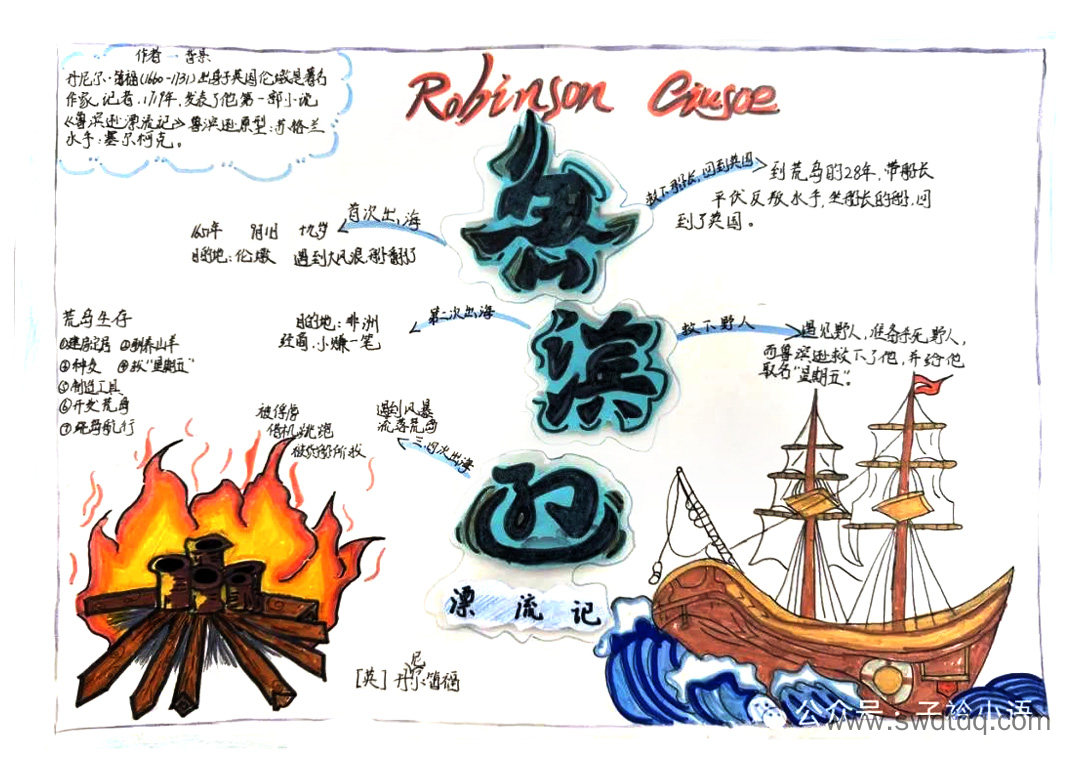 Robinson Ciusoe
作者 背景
丹尼尔·笛福(1660-1731)出身于英国伦敦是著名
作家,记者.1719年,发表了他第一部小说
《鲁滨逊漂流记》鲁滨逊原型:苏格兰
水手:塞尔柯克。
鲁
滨
逊
漂 流 记
[英] 丹尼尔·笛福
首次出海
1651年 9月1日 十九岁
目的地:伦敦 遇到大风浪,船翻了
第二次出海
目的地:非洲
经商:小赚一笔
三四次出海
被俘虏
借机跳跑
被货船所救
遇到风暴
流落荒岛
荒岛生存
①建房定居 ②驯养山羊
③种麦 ④救“星期五”
⑤制造工具
⑥开发荒岛
救下野人
遇见野人,准备杀死野人,
而鲁滨逊救下了他,并给他
取名“星期五”。
救下船长,回到英国
到荒岛的28年,带船长
平伏反叛水手,坐船长的船,回
到了英国。
公众号·子衿小语
www.swdtdq.com